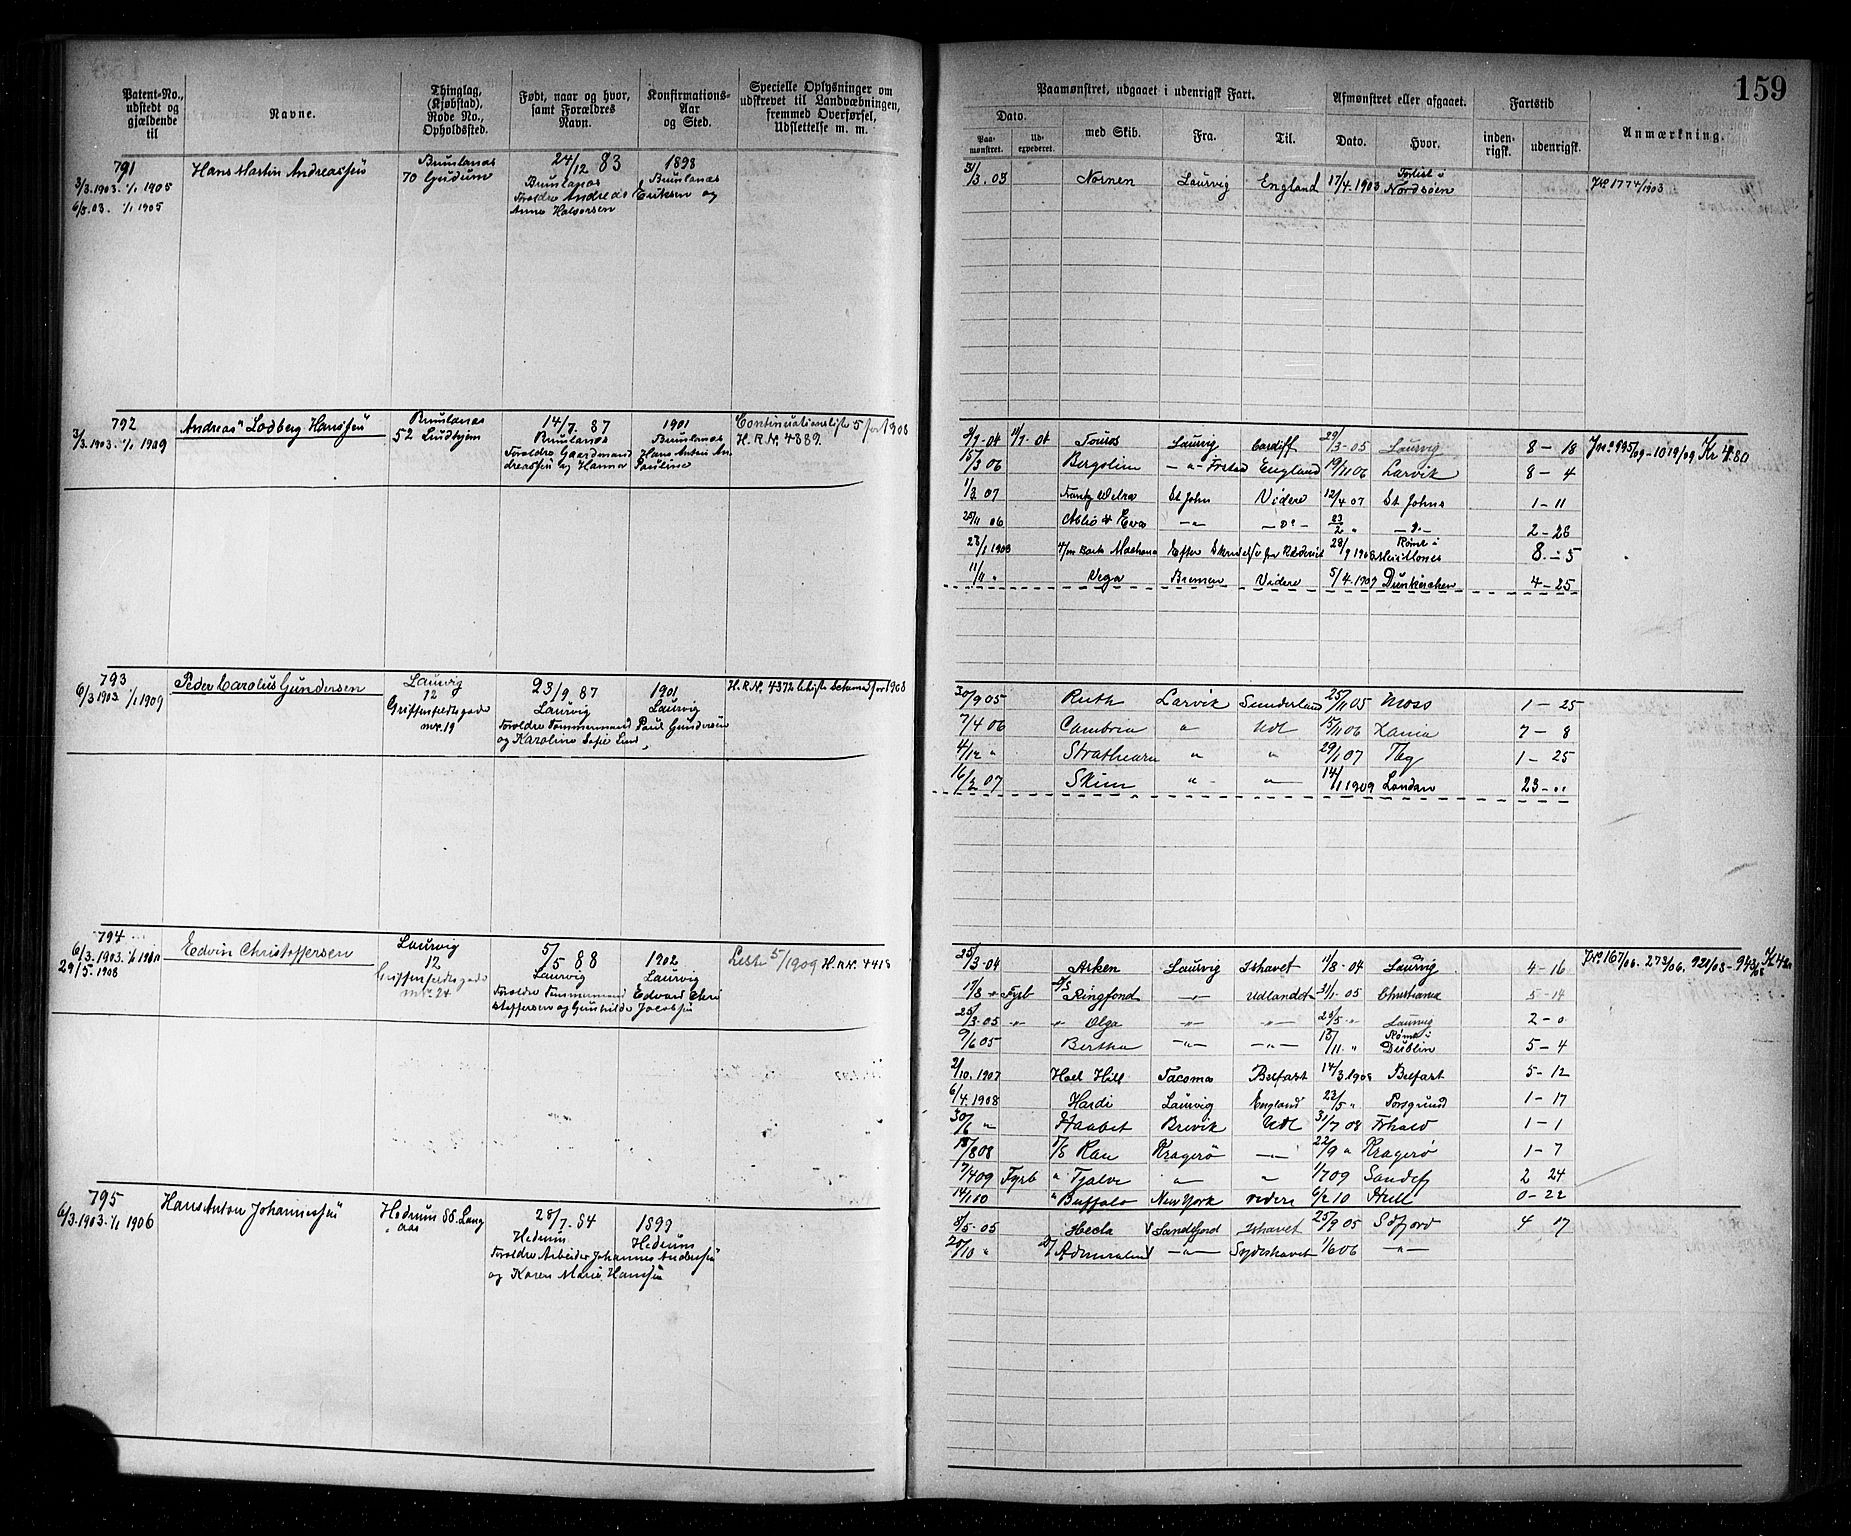 159
Patent-No., udstedt og gjældende til
Navne.
Thinglag, (Kjøbstad), Rode No., Opholdssted.
Født, naar og hvor, samt Forældres Navn.
Konfirmations-Aar og Sted.
Specielle Oplysninger om udskrevet til Landvæbningen, fremmed Overførsel, Udslettelse m. m.
Paamønstret, udgaaet i udenrigsk Fart.
Afmønstret eller afgaaet.
Fartstid
Anmærkning.
Dato.
Paamønstret.
Udexpederet.
med Skib.
Fra.
Til.
Dato.
Hvor.
indenrigsk.
udenrigsk.
791
3/3.1903. 1/1 1905
6/3.03. 1/1 1905
Hans Martin Andreassen
Brunlanæs
70 Gudum
24/12 83
Brunlanæs
Forældre Andreas Eriksen og
Anne Halvorsen
1898
Brunlanæs
31/3.03 Nornen Laurvig England 17/4.1903 Forlist i Nordsøen
JNo 1774/1903
792
3/3.1903. 1/1 1909
Andreas Lodberg Hanssen
Brunlanæs
52
14/7. 87
Brunlanæs
Forældre Gaardmand Hans Anton Andreassen og Hanna Pauline
1901
Brunlanæs
5 for 1908
H.R.N. 4389.
9/9-04 11/9-04 Touros Laurvig Cardiff 29/3-05 Laurvig 8-18
15/3 06 Bergslien England 19/11 06 Larvik 8-4
1/3 07 St John Videre 12/4 07 St Johns 1-11
25/11 06 -"- 23/2 " -"- 2-28
23/1 1908 4/m Bark 28/9 1908 Rømt i 8-5
11/11 " Vega Bremen Videre 5/4.1909 Dünkirchen 4-25
Jno 995/09 - 1019/09 Kr 4.80
793
6/3 1903. 1/1 1909
Peder Carolus Gundersen
Laurvig
12
Griffenfeldtsgade
nr. 19
23/9. 87
Laurvig
Forældre Tømmermand Paul Gundersen
og Karoline Sofie Lund
1901
Laurvig
H.R.N. 4372 for 1908
30/9 05 Ruth Larvik Sunderland 25/11 05 Moss 1-25
7/4 06 Cambria " Udl 15/11 06 7-8
4/12 " Strathearn " " 29/1 07 1-25
16/2 07 Skien " " 14/1 1909 London 23-"
794
6/3.1903.
29/5.1908
Edvin Christoffersen
Laurvig
12
Griffenfeldtsgade
nr. 24
5/5 88
Laurvig
Forældre Tømmermand Edvard Christoffersen og Gunhilde Jacobsen
1902
Laurvig
Liste 5/1909 H.R.N. 4418
25/3-04 Arken Laurvig Ishavet 11/8-04 Laurvig 4-16
17/8 " Fyrb D/S Ringfond -"- Udlandet 31/1-05 Christiania 5-14
25/3-05 " " Olga -"- -"- 23/5-" Laurvig 2-0
9/6 05 Bertha -"- -"- 13/11 " Rømt i Dublin 5-4
2/10.1907 Hoel Hill Tacoma Belfast 14/3 1908 Belfast 5-12
6/4.1908 Hardi Laurvig England 22/5 " Porsgrund 1-17
30/6 " Haabet Brevik Udl 31/7 08 Frhald 1-1
15/8 08 D/S Ran Kragerø -"- 22/9 " Kragerø 1-7
17/4 09 Fyrb " Fjalve " " 1/7 09 Sandef 2 24
14/1 10 " Buffalo New York videre 6/2 10 Hull 0-22
JNo 167/06. 273/06. 921/08 - 943/08
795
6/3.1903. 1/1 1906
Hans Anton Johannessen
Hedrum 88. Lang
aas
28/7. 84
Hedrum
Forældre Arbeider Johannes Andersen
og Karen Marie Hanssen
1899
Hedrum
8/5-05 Hecla Sandefjord Ishavet 25/9 05 Sdfjord 4 17
20/10 " D/S Admiralen -"- Sydishavet 1/6 06 -"-